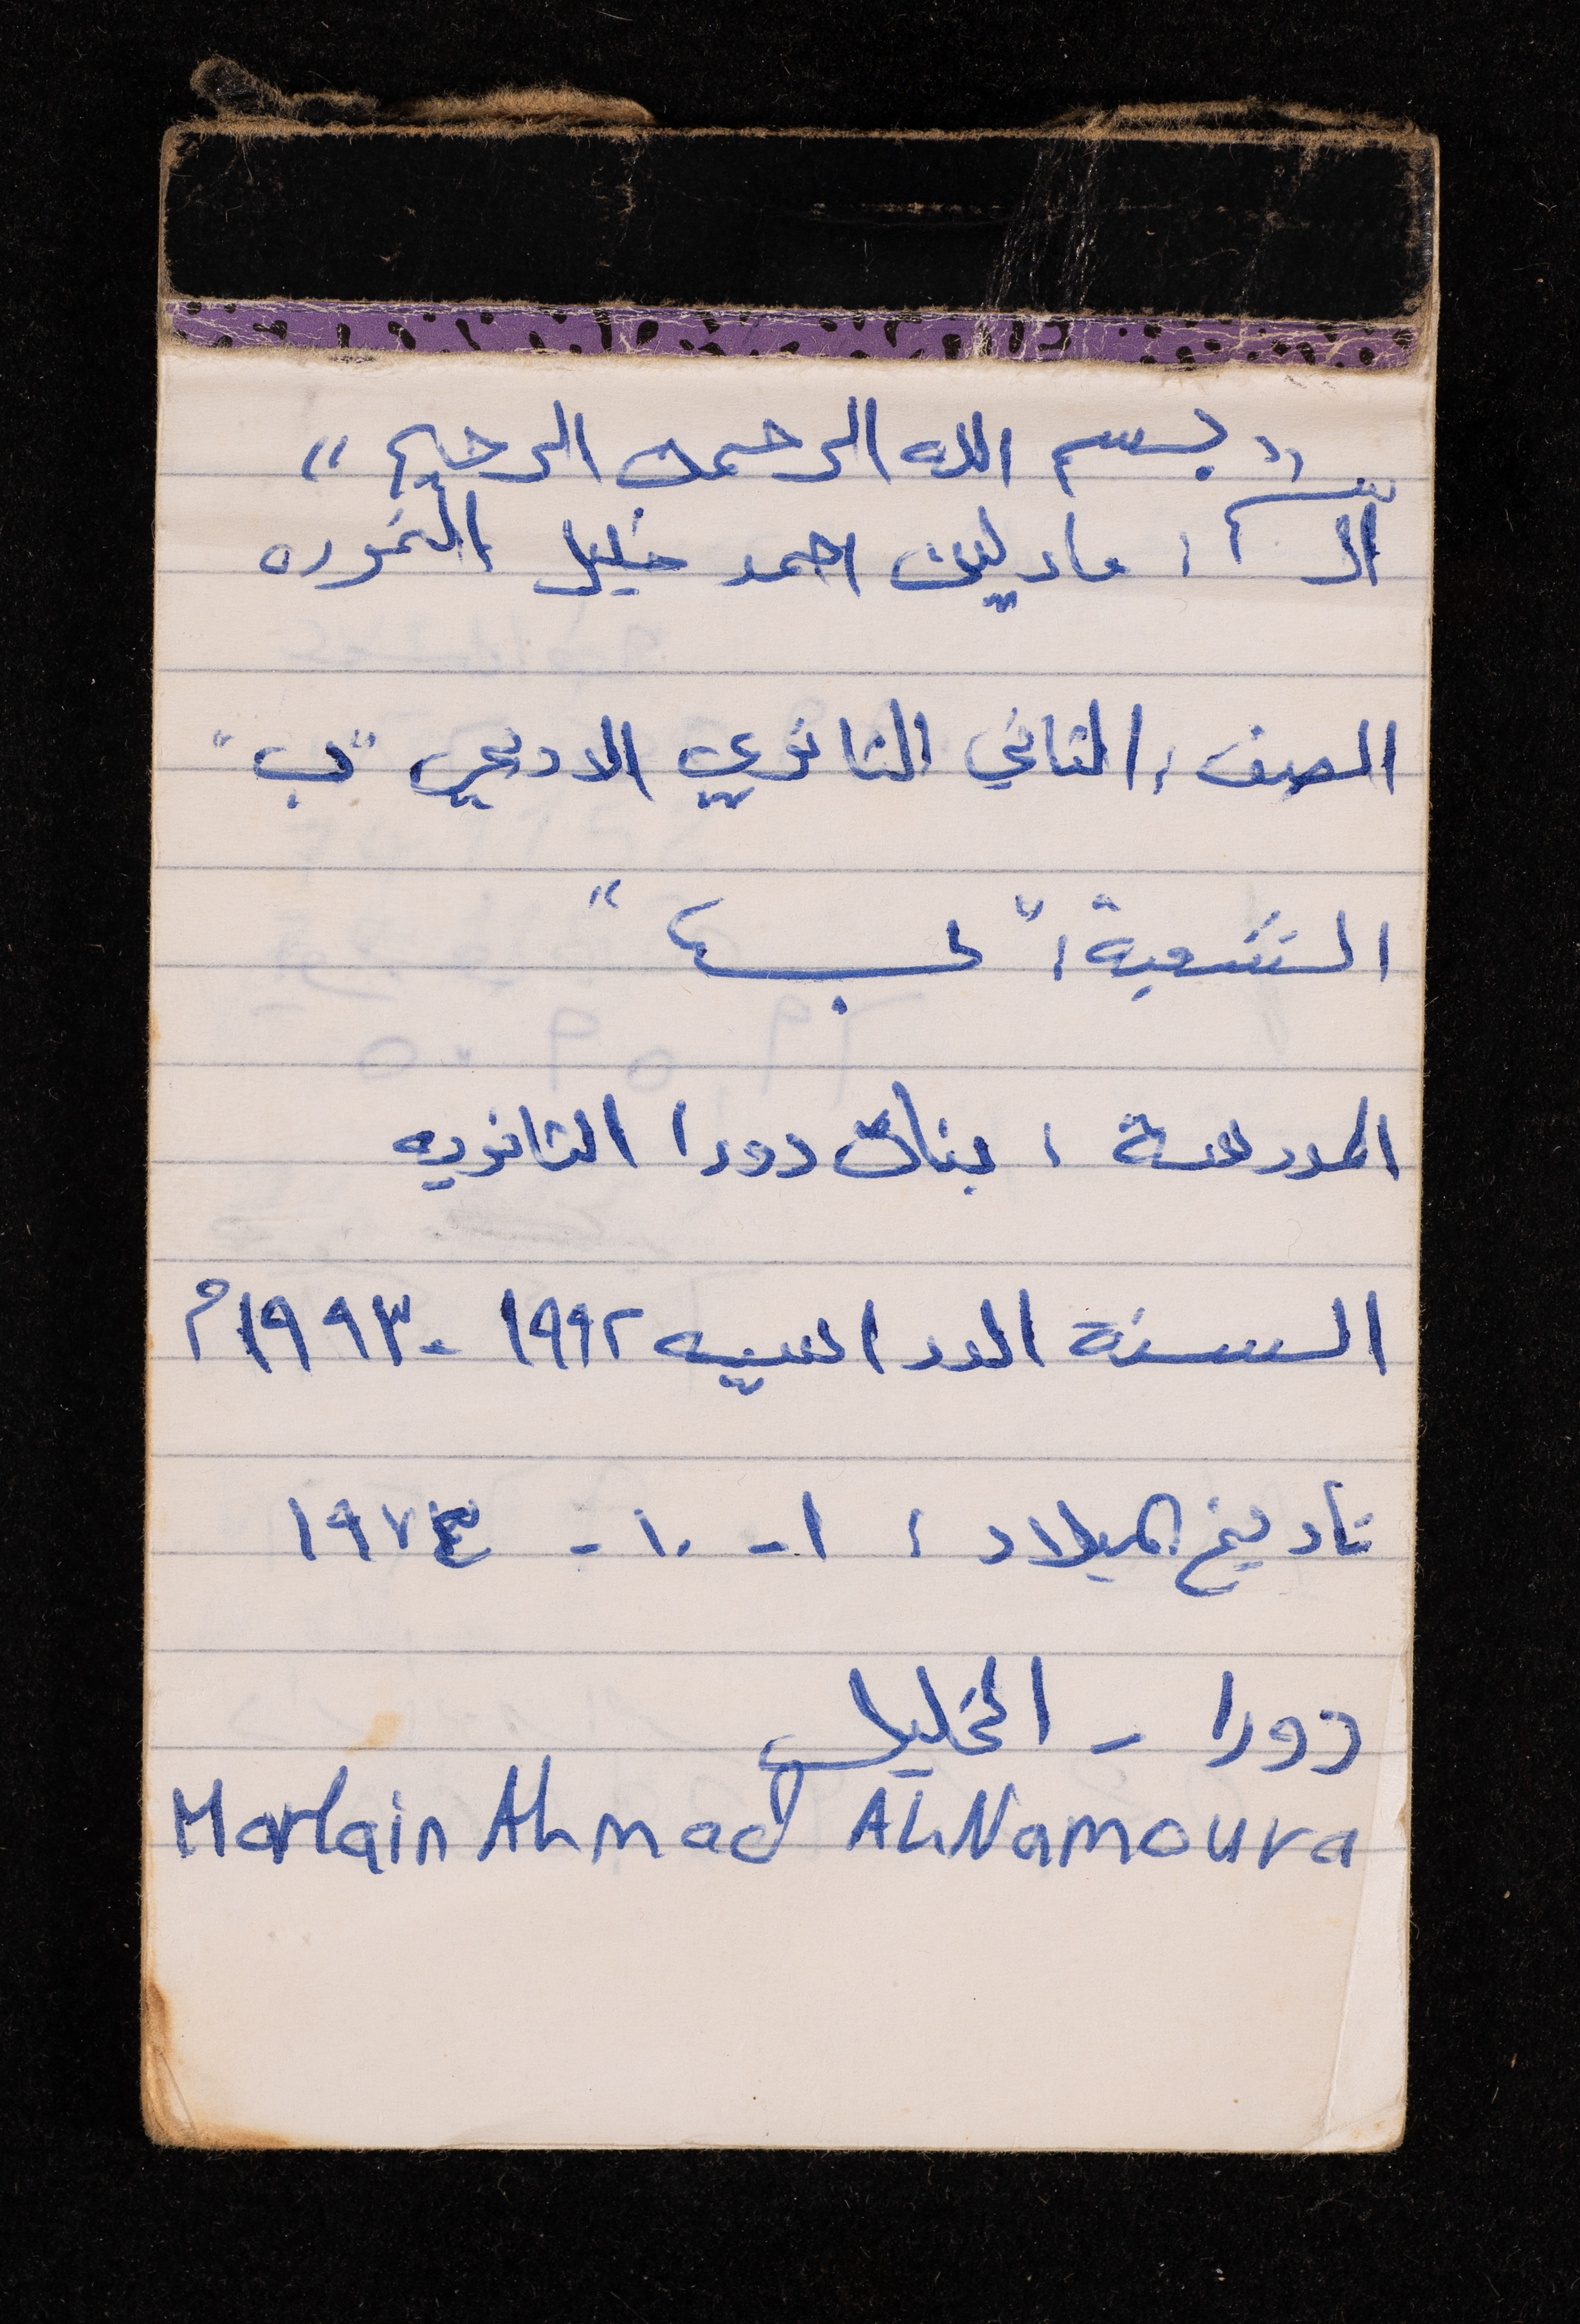 "بسم الله الرحمن الرحيم"
الاسم : مارلين احمد خليل النموره
الصف : الثاني الثانوي الادبي "ب"
الشعبة : "ب"
المدرسة : بنات دورا الثانويه
السنة الدراسيه ١٩٩٢ - ١٩٩٣م
تاريخ الميلاد : ١ - ١٠ - ١٩٧٤
دورا - الخليل
Marlain Ahmad AL.Namoura